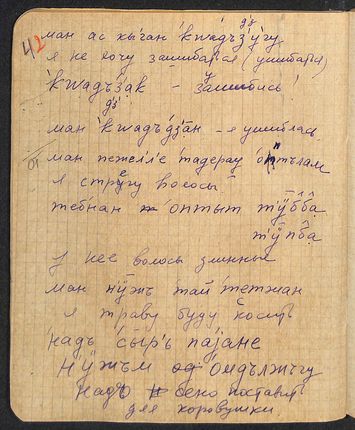 42
ман ас кы́ган кwадъз'у́гу
дз'
я не хочу зашибаться (ушибаться)
кwадъз'ак – зашибись!
у
дз'
ман кwадъ'дз'ан – я ушиблась
ман пежел'л'е тадерау оптълам
я стригу волосы
тебнан оптыт тӱббa
тӱпба
у нее волосы длинные
ман нӱжъ тай тетжан
я траву буду косить
надъ сыръ паjане
нӱжъм од ондължъгу
надо сено поставить
для коровушки